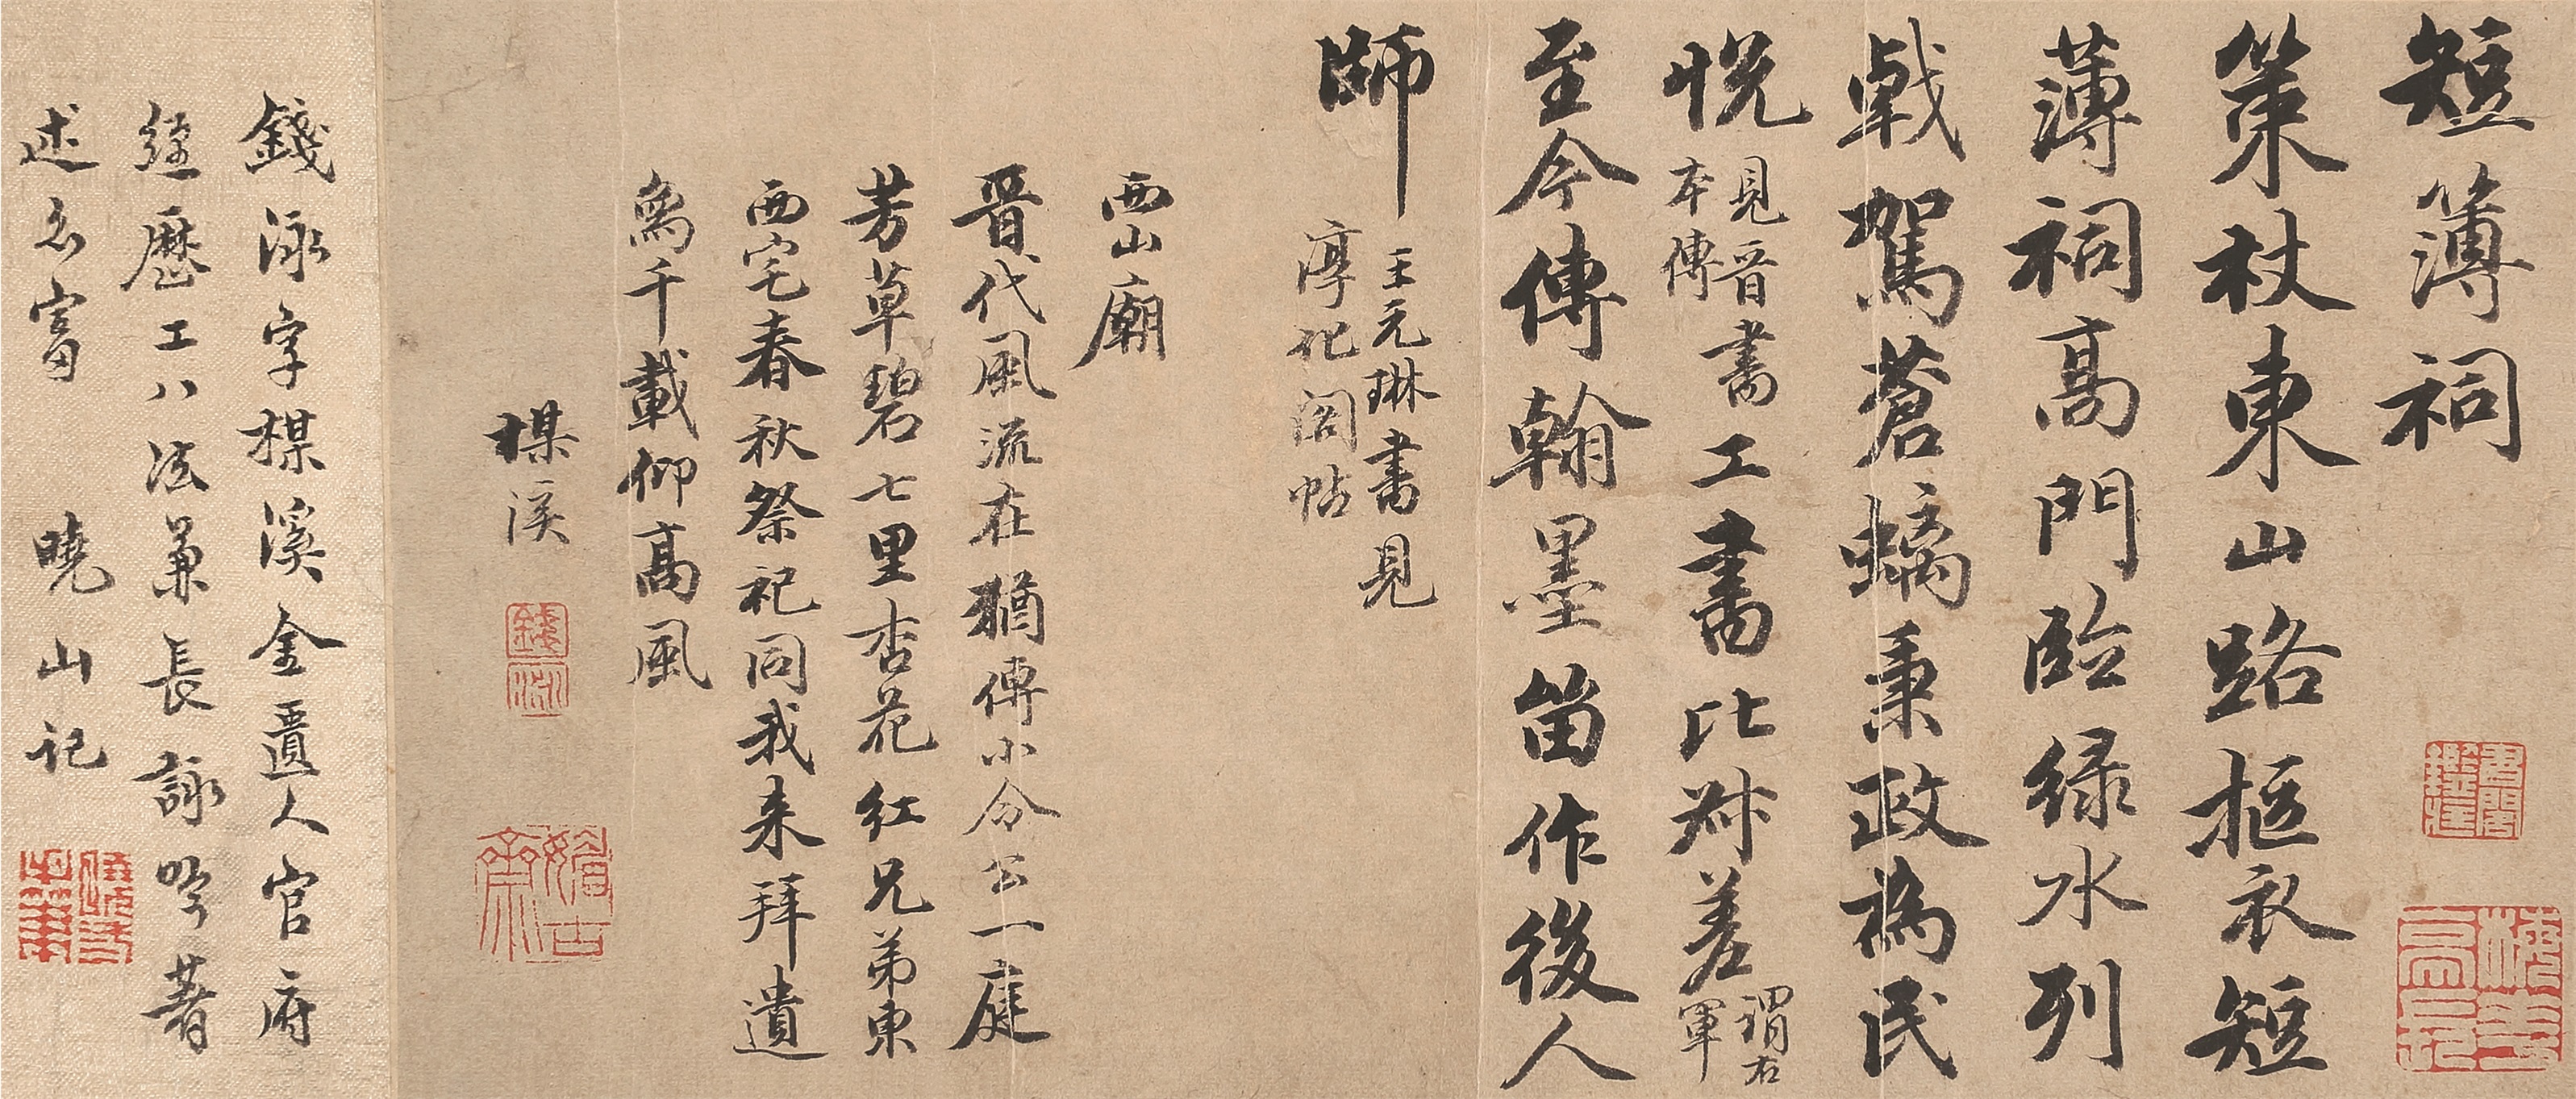 短簿祠
策杖東山路摳衣短
薄祠高門臨綠水列
戟駕蒼螭秉政為民
悅
見晉書
本傳
工書比叔差
謂右
軍
至今傳翰墨留作後人
師
王元琳書見
淳化閣帖
西山廟
晉代風流在猶傳小令公一庭
芳草碧七里杏花紅兄弟東
西宅春秋祭祀同我来拜遺
像千載仰高風
楳溪
錢泳
錢泳字楳溪金匱人官府
經歷工八法兼長詠吟著
述亦富 曉山記